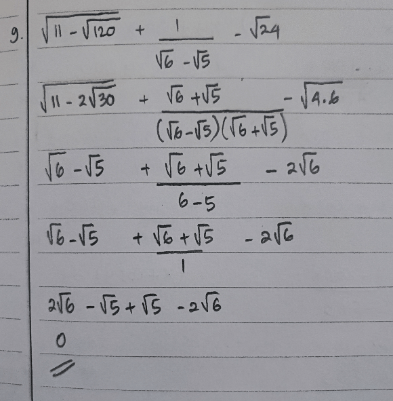 9. √(11 - √120) + 1/(√6 - √5) - √24
√(11 - 2√30) + (√6 + √5)/((√6 - √5)(√6 + √5)) - √(4.6)
√6 - √5 + (√6 + √5)/(6 - 5) - 2√6
√6 - √5 + (√6 + √5)/1 - 2√6
2√6 - √5 + √5 - 2√6
0